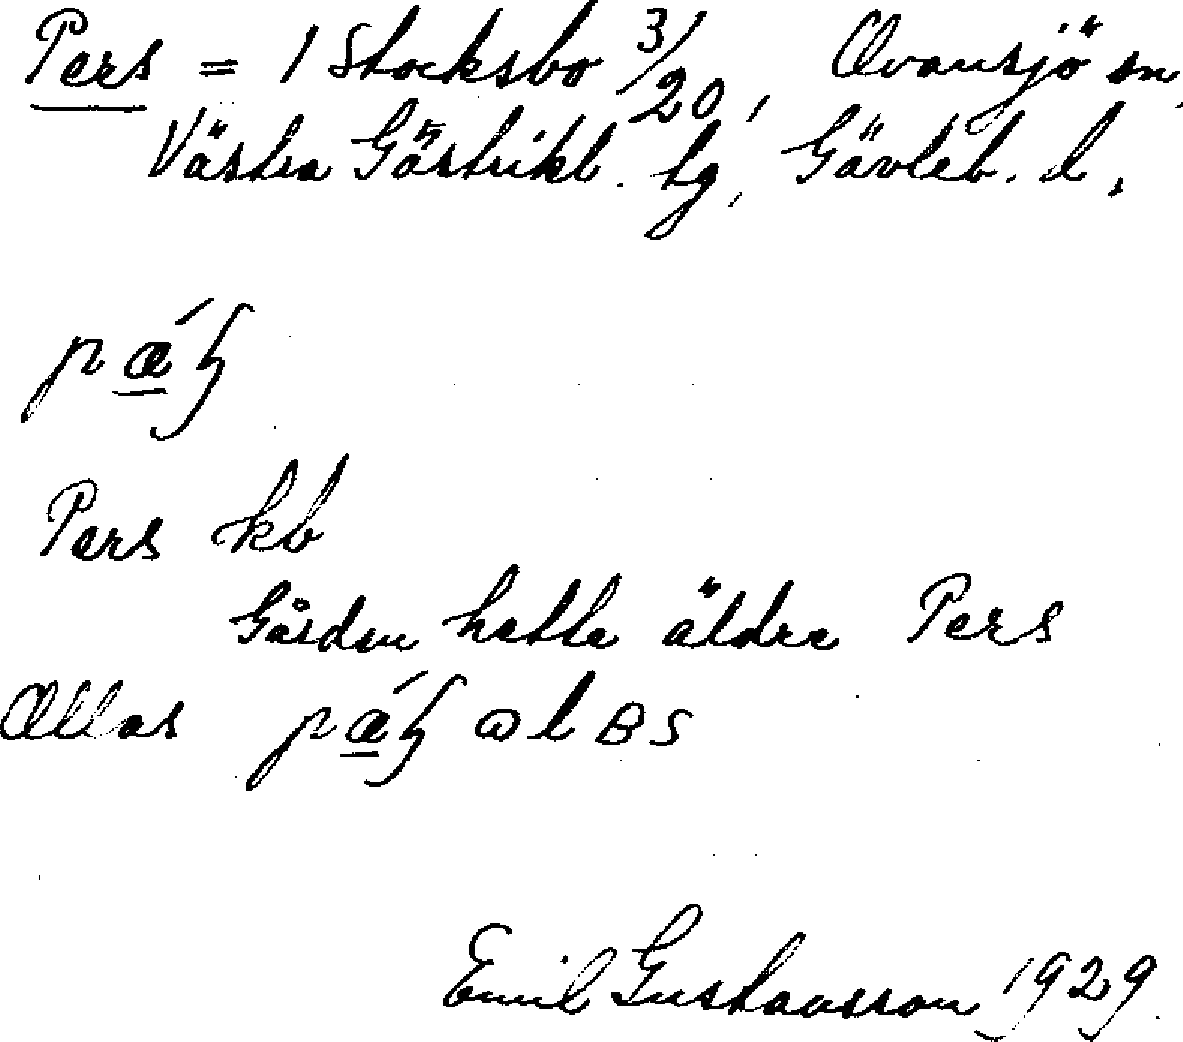 Pers = 1 Stocksbo 3/20, Ovansjö sn,
Västra Gästrikl. tg, Gävleb. l.
Pers kb
Gården hette äldre Pers
Ollas
Emil Gustavsson 1929.